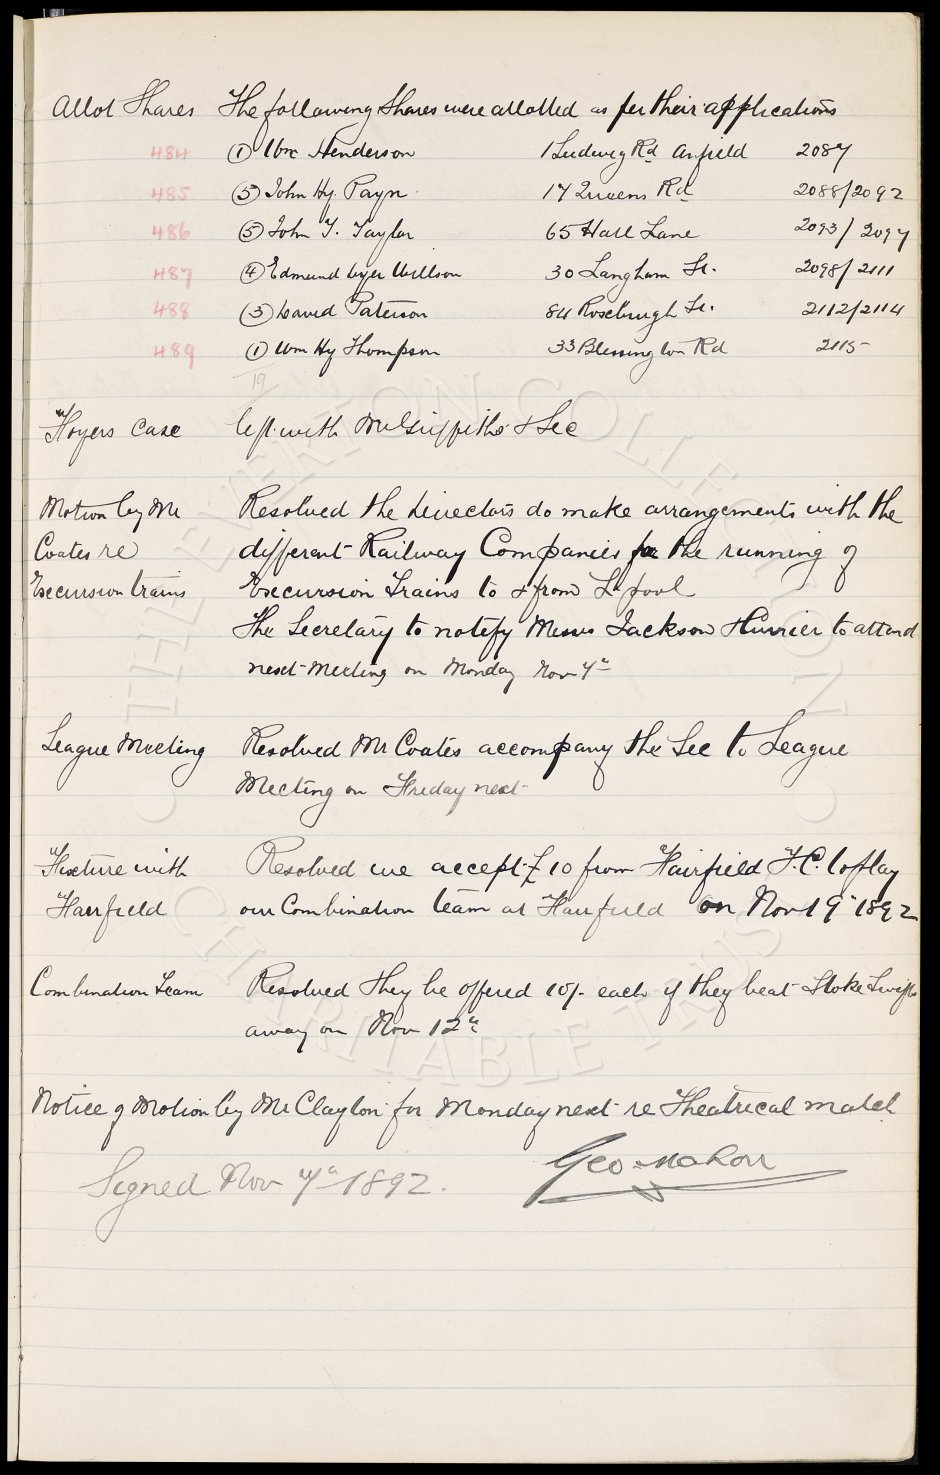 Allot Shares The following Shares were allotted as per their applications
484 (1) Wm Henderson 1 Ludwig Rd Anfield 2087
485 (5) John Hy. Payn 17 Queens Rd 2088/2092
486 (5) John T. Taylor 65 Hall Lane 2093/2097
487 (4) Edmund Willson 30 Langham St. 2098/2111
488 (3) David Paterson 84 Roseburgh St. 2112/2114
489 (1) Wm Hy Thompson 33 Blessington Rd 2115
19
Hoyers Case left with Mr Griffiths & Sec
Motion by Mr Resolved the Directors do make arrangements with the
Coates re different Railway Companies for the running of
Excursion trains Excursion Trains to & from L'pool
The Secretary to notify Messrs Jackson & Currier to attend
next Meeting on Monday Nov 7th
League Meeting Resolved Mr Coates accompany the Sec to League
Meeting on Friday next
Fixture with Resolved we accept £10 from Fairfield F.C. to play
Fairfield our Combination team at Fairfield on Nov 19th 1892
Combination Team Resolved they be offered 10/- each if they beat Stoke Swifts
away on Nov 12th
Notice of Motion by Mr Clayton for Monday next re Theatrical match
Signed Nov 7th 1892. Geo Mahon
THE EVERTON COLLECTION
CHARITABLE TRUST